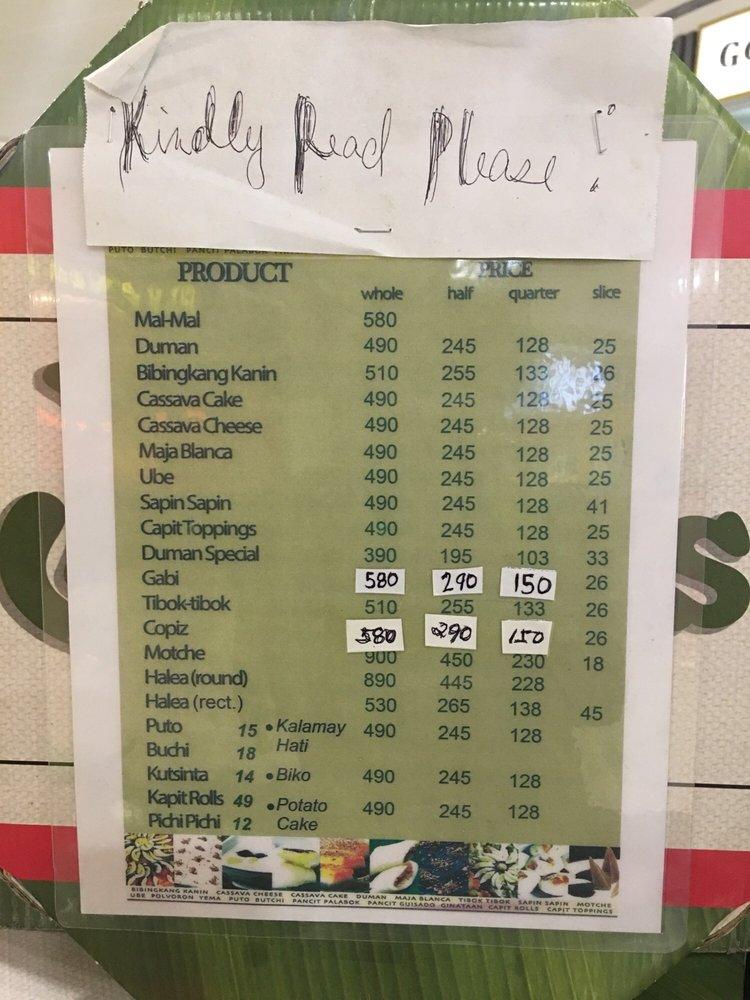 Kindly Read Please!
PUTO BUTCHI PANCIT PALABOK
PRODUCT PRICE
whole half quarter slice
Mal-Mal 580
Duman 490 245 128 25
Bibingkang Kanin 510 255 133 26
Cassava Cake 490 245 128 25
Cassava Cheese 490 245 128 25
Maja Blanca 490 245 128 25
Ube 490 245 128 25
Sapin Sapin 490 245 128 41
Capit Toppings 490 245 128 25
Duman Special 390 195 103 33
Gabi 580 290 150 26
Tibok-tibok 510 255 133 26
Copiz 580 290 150 26
Motche 900 450 230 18
Halea (round) 890 445 228
Halea (rect.) 530 265 138 45
Puto 15 • Kalamay Hati 490 245 128
Buchi 18
Kutsinta 14 • Biko 490 245 128
Kapit Rolls 49 • Potato Cake 490 245 128
Pichi Pichi 12
BIBINGKANG KANIN CASSAVA CHEESE CASSAVA CAKE DUMAN MAJA BLANCA TIBOK TIBOK SAPIN SAPIN MOTCHE
UBE POLVORON YEMA PUTO BUTCHI PANCIT PALABOK PANCIT GUISADO GINATAAN CAPIT ROLLS CAPIT TOPPINGS